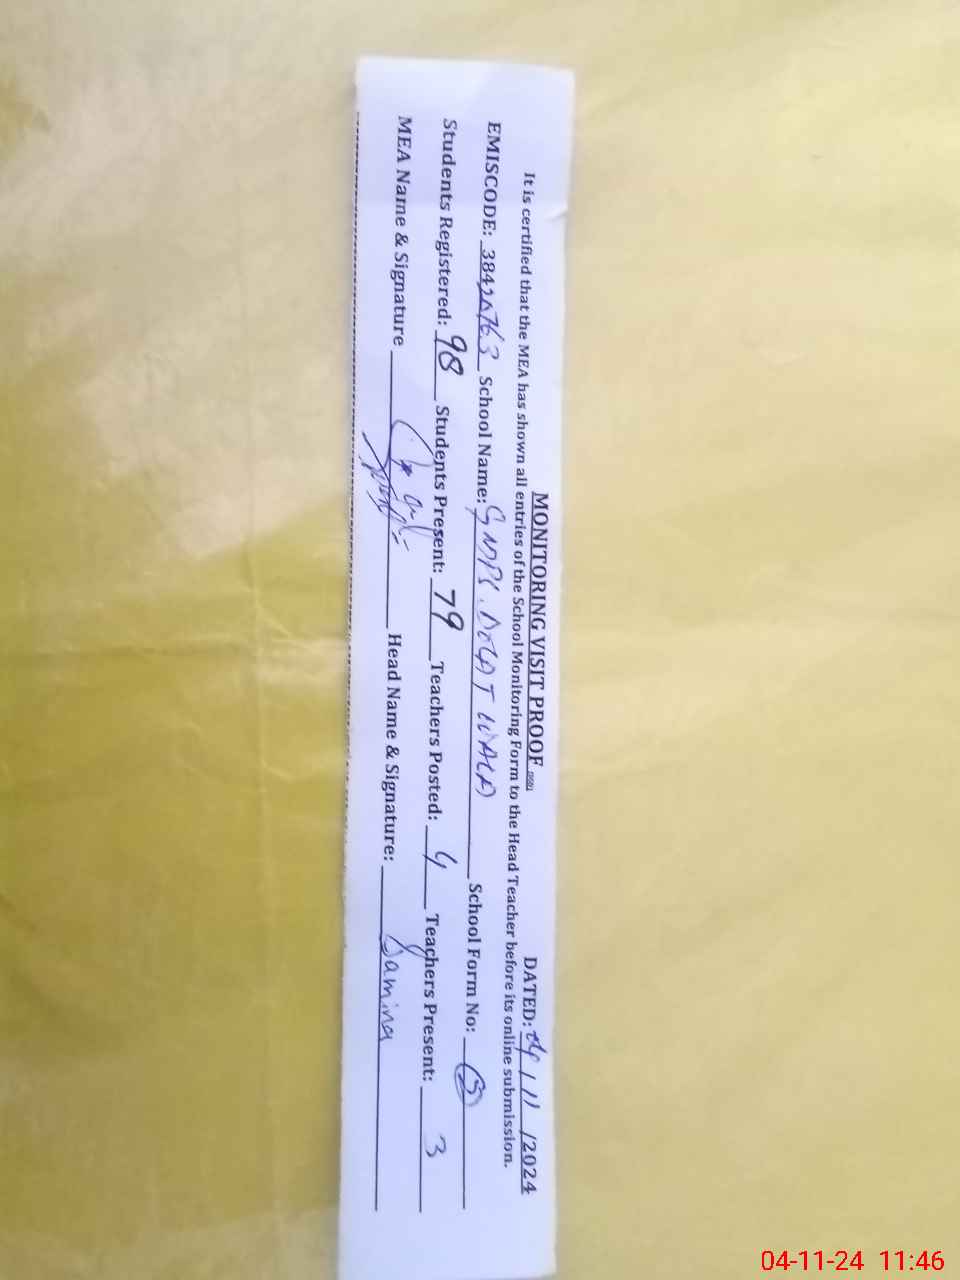 MONITORING VISIT PROOF DATED: 04/11/2024
It is certified that the MEA has shown all entries of the School Monitoring Form to the Head Teacher before its online submission.
EMISCODE: School Name: School Form No:
Students Registered: 98 Students Present: 79 Teachers Posted: 4 Teachers Present: 3
MEA Name & Signature Head Name & Signature: Samina
04-11-24 11:46